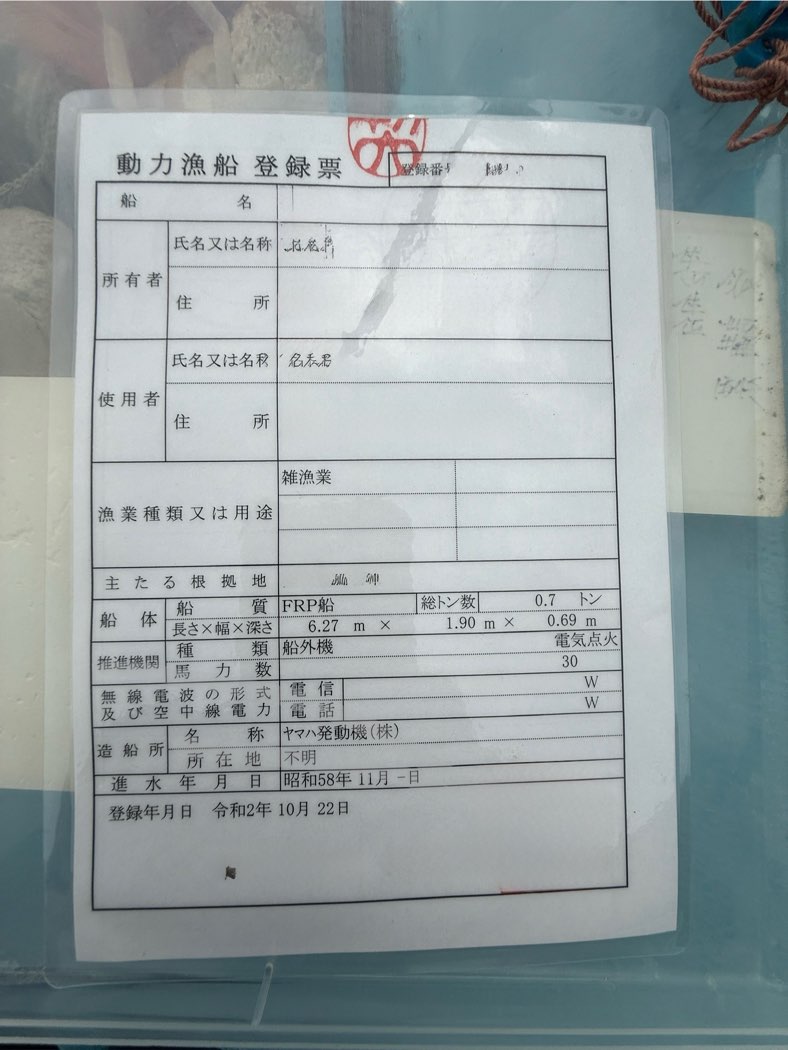 動力漁船 登録票
登録番号
船名
所有者
氏名又は名称
住所
使用者
氏名又は名称
住所
漁業種類又は用途 雑漁業
主たる根拠地
船体
船質 FRP船 総トン数 0.7 トン
長さ×幅×深さ 6.27 m × 1.90 m × 0.69 m
推進機関
種類 船外機 電気点火
馬力数 30
無線電波の形式
及び空中線電力
電信 W
電話 W
造船所
名称 ヤマハ発動機(株)
所在地 不明
進水年月日 昭和58年 11月 -日
登録年月日 令和2年 10月 22日